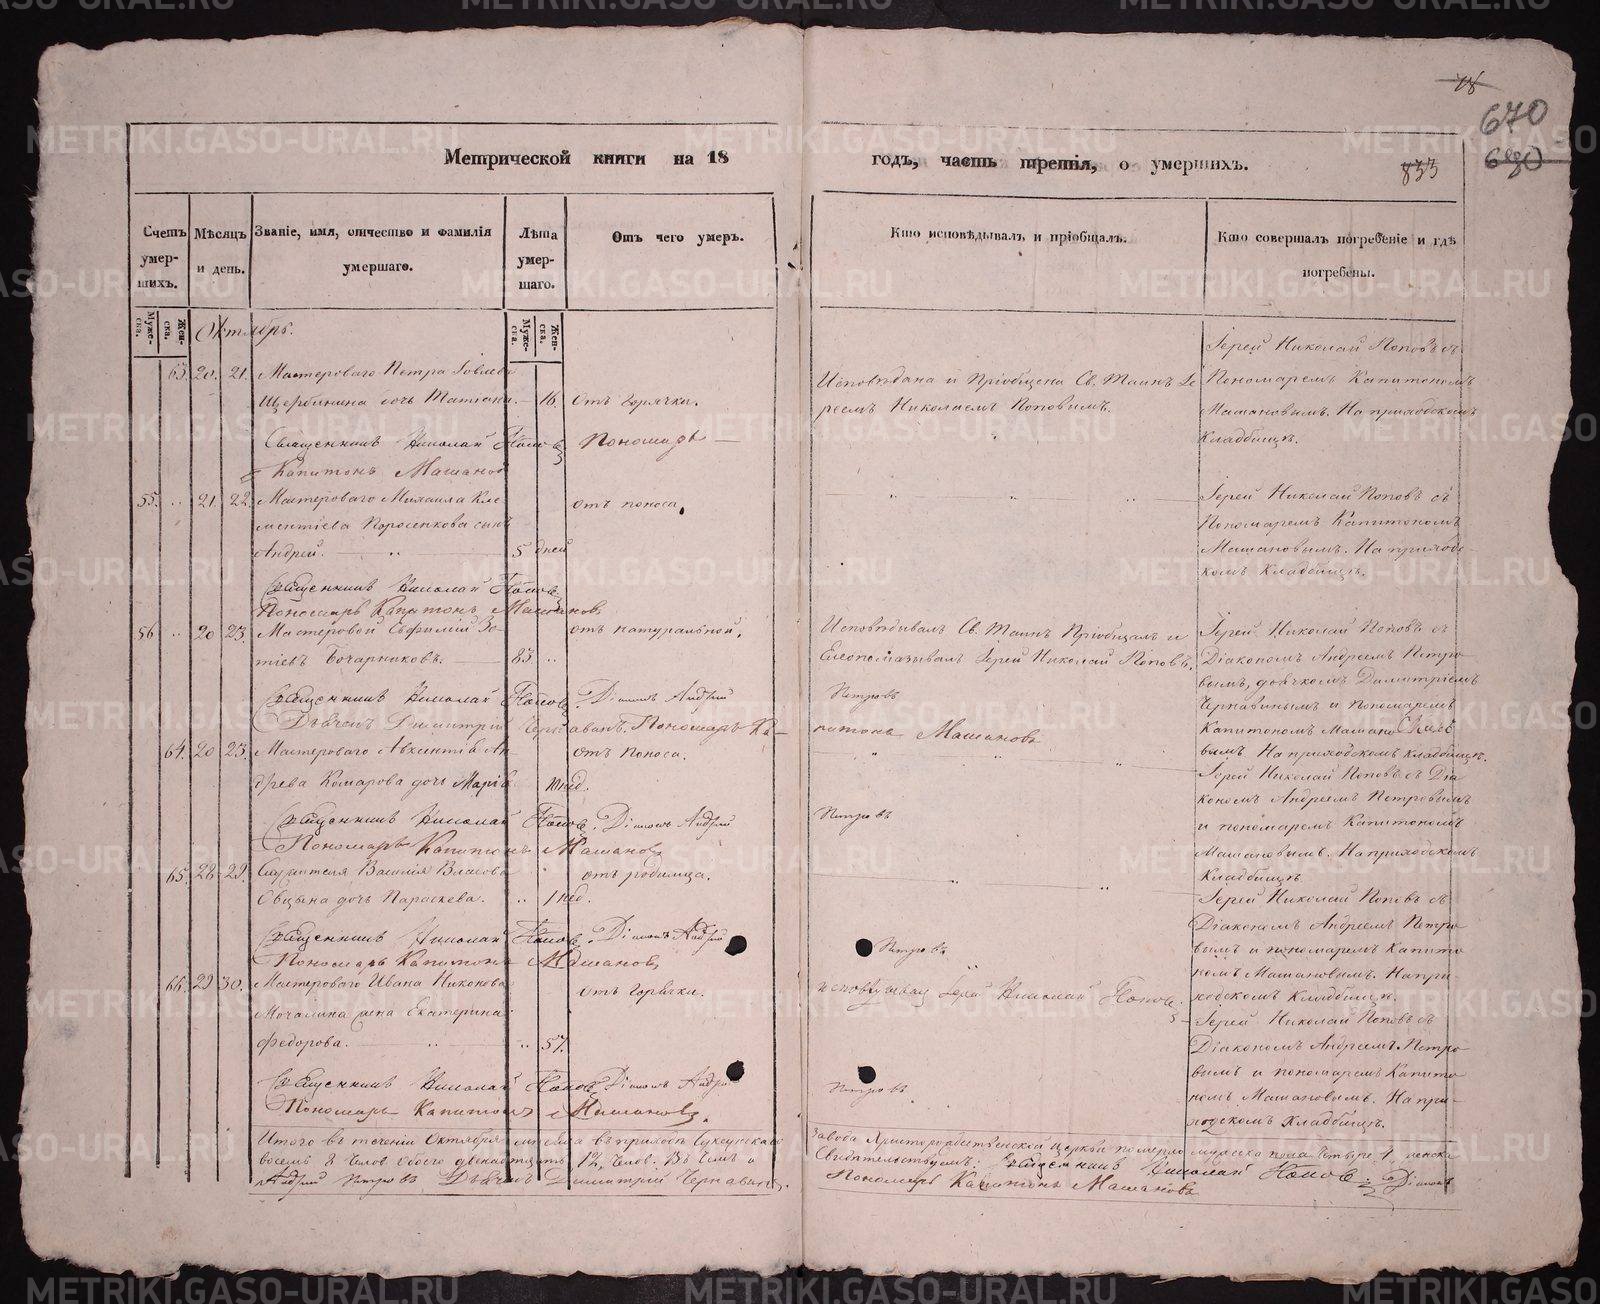 670
833
Метрической книги на 18 годъ, часть третія, о умершихъ.
Счетъ умер- шихъ.
Мѣсяцъ и день.
Званіе, имя, отчество и фамилія умершаго.
Лѣта умер- шаго.
Отъ чего умеръ.
Кто исповѣдывалъ и пріобщалъ.
Кто совершалъ погребеніе и гдѣ погребены.
Муже- ска.
Жен- ска.
Муже- ска.
Жен- ска.
Октябрь.
63. 20. 21. Мастероваго Петра Іовлева
Щербинина дочь Татіана. 16. Отъ горячки.
Исповѣдана и Пріобщена Св. Таинъ Іе-
реемъ Николаемъ Поповымъ.
Іерей Николай Поповъ съ
Пономаремъ Капитономъ
Машановымъ. На приходскомъ
Кладбищѣ.
Священникъ Николай Поповъ Пономарь
Капитонъ Машановъ
55. 21. 22. Мастероваго Михаила Кле-
ментіева Поросенкова сынъ
Андрей. 5 дней
отъ поноса.
Іерей Николай Поповъ съ
Пономаремъ Капитономъ
Машановымъ. На приход-
комъ Кладбищѣ.
Священникъ Николай Поповъ
Пономарь Капитонъ Машановъ
56 20 23. Мастеровой Евфимій Зо-
тіевъ Бочарниковъ. 83 отъ натуральной.
Исповѣдывалъ Св. Таинъ Пріобщалъ и
Елеопомазывалъ Іерей Николай Поповъ.
Іерей Николай Поповъ съ
Діакономъ Андреемъ Петро-
вымъ, дьячкомъ Димитріемъ
Чернавинымъ и пономаремъ
Капитономъ Машано
вымъ На приходскомъ кладбищѣ.
Священникъ Николай Поповъ. Діаконъ Андрей Петровъ
Дьячекъ Димитрій Чернавинъ. Пономарь Ка-
питонъ Машановъ
64. 20 23. Мастероваго Авксентія Ан-
дреева Комарова дочь Марія нед.
отъ поноса.
Іерей Николай Поповъ съ Діа-
кономъ Андреемъ Петровымъ
и пономаремъ Капитономъ
Машановымъ. На приходскомъ
Кладбищѣ
Священникъ Николай Поповъ. Діаконъ Андрей Петровъ
Пономарь Капитонъ Машановъ
65. 28 29. Служителя Василія Власова
Овцына дочь Параскева. 1 нед.
отъ родимца.
Іерей Николай Поповъ съ
Діакономъ Андреемъ Петро-
вымъ и пономаремъ Капито-
номъ Машановымъ. На при-
ходскомъ Кладбищѣ.
Священникъ Николай Поповъ. Діаконъ Андрей Петровъ
Пономарь Капитонъ Машановъ
66. 29 30. Мастероваго Ивана Никонова
Мочалина жена Екатерина
Федорова. 57.
отъ горячки.
исповѣдывалъ Іерей Николай Поповъ.
Іерей Николай Поповъ съ
Діакономъ Андреемъ Петро-
вымъ и пономаремъ Капито-
номъ Машановымъ. На при-
ходскомъ Кладбищѣ.
Священникъ Николай Поповъ Діаконъ Андрей Петровъ
Пономарь Капитонъ Машановъ.
Итого въ теченіи Октября мѣсяца въ приходѣ Суксунскаго завода Христорождественской церкви померло мужеска пола четыре 4, женска
восемь 8 челов. Обоего двенадцать 12, челов. Въ чемъ и Свидѣтельствуемъ: Священникъ Николай Поповъ. Діаконъ
Андрей Петровъ Дьячекъ Димитрій Чернавинъ. Пономарь Капитонъ Машановъ
METRIKI.GASO-URAL.RU